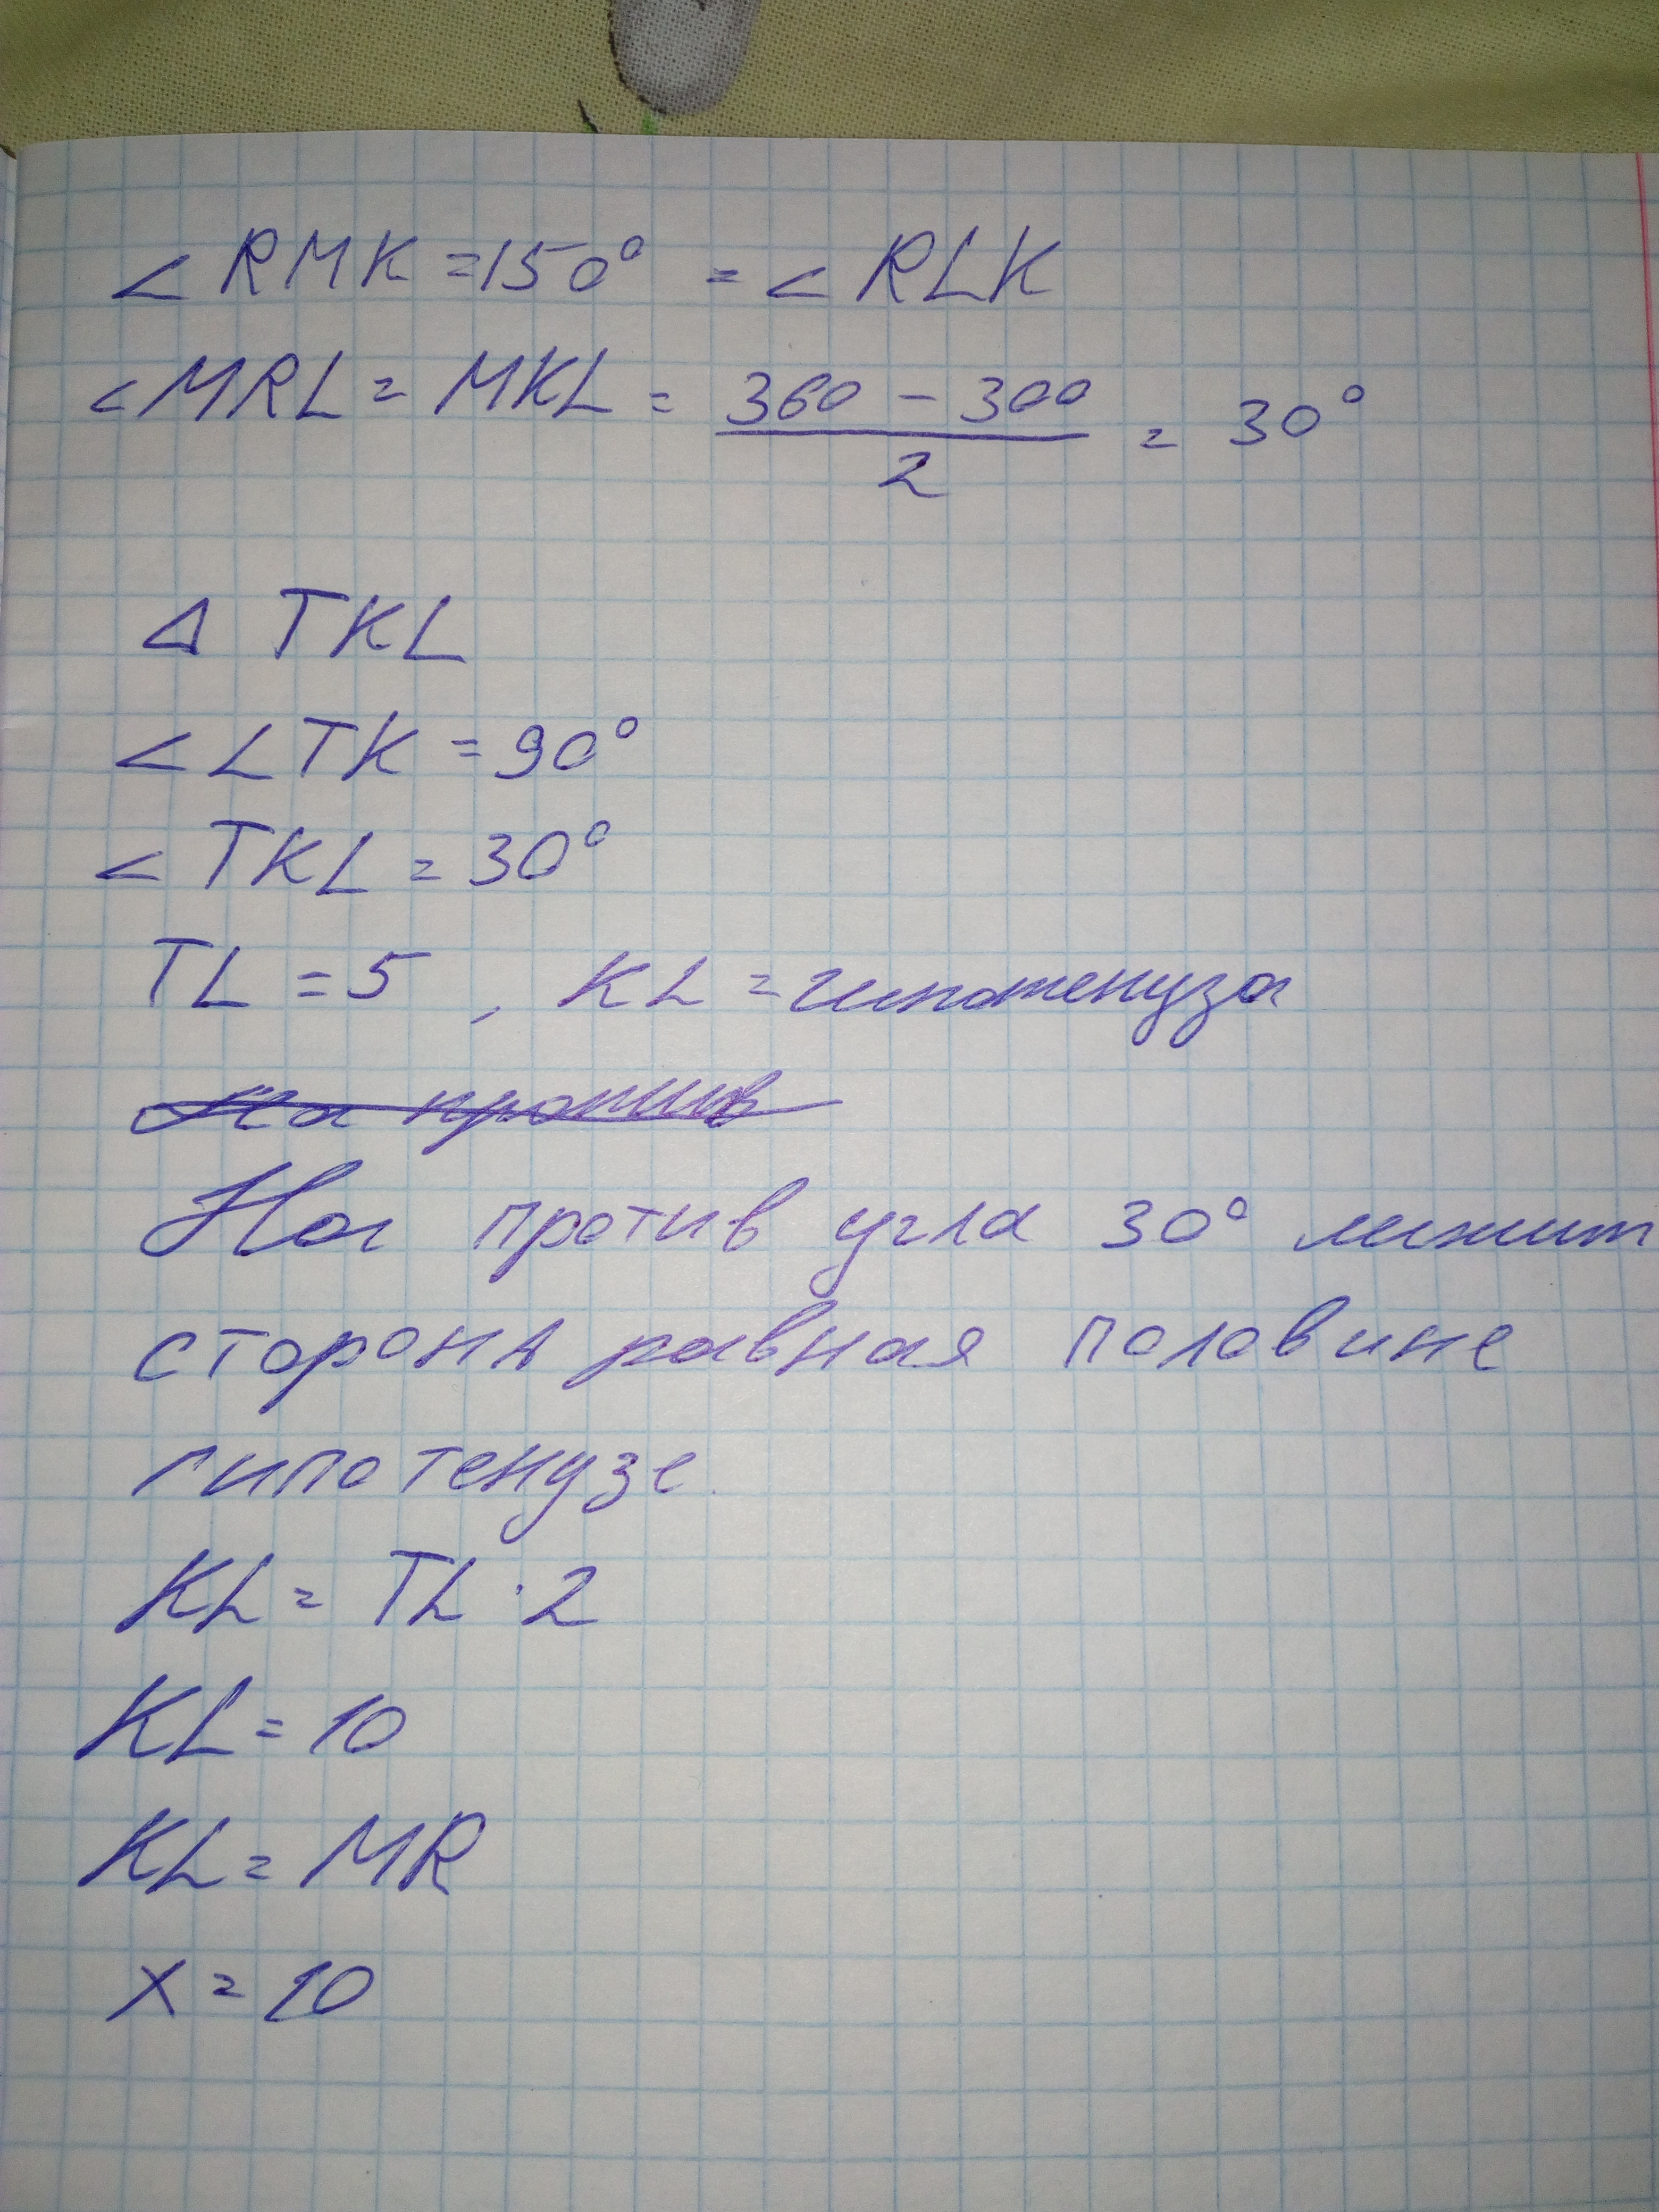 ∠ RMK = 150° = ∠ RLK
∠ MRL = MKL = (360 - 300)/2 = 30°
Δ TKL
∠ LTK = 90°
∠ TKL = 30°
TL = 5 , KL = гипотенуза
На против
На против угла 30° лижит
сторона равная половине
гипотенузе.
KL = TL · 2
KL = 10
KL = MR
x = 10